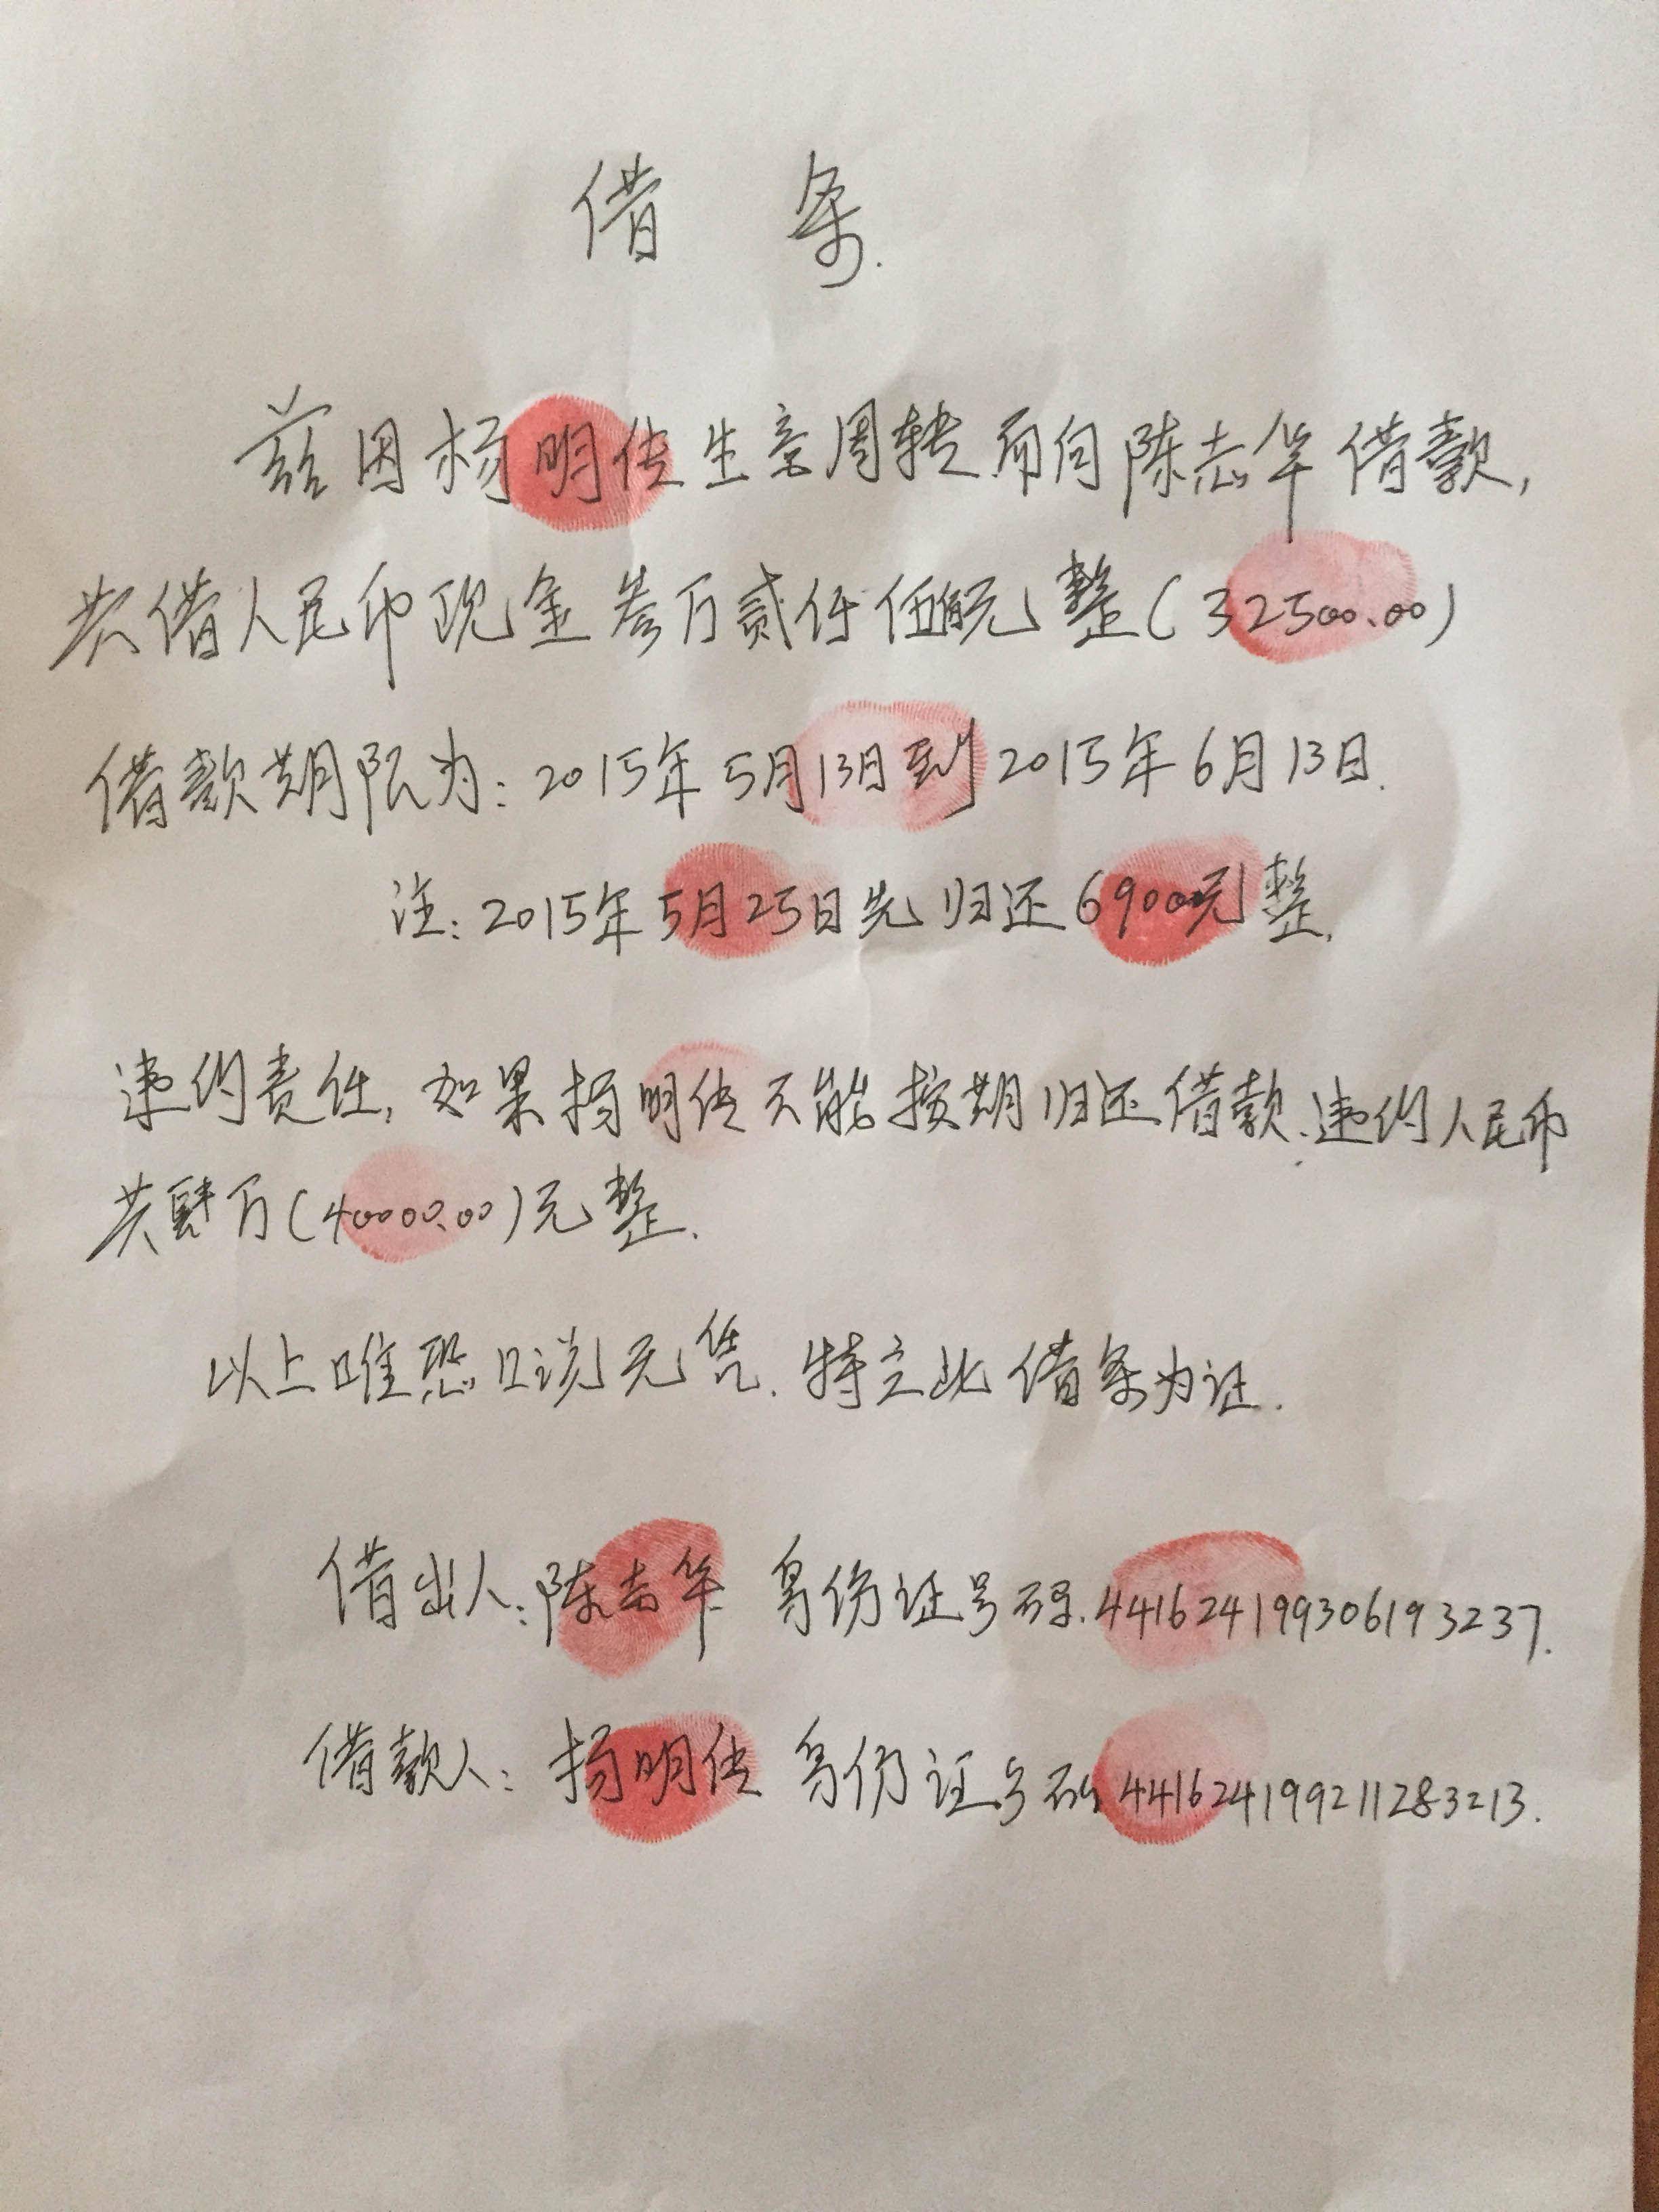 借 条.
兹因杨明传生意周转而向陈志华借款,
共借人民币现金叁万贰仟伍佰元整(32500.00)
借款期限为:2015年5月13日到2015年6月13日.
注:2015年5月25日先归还6900元整.
违约责任,如果杨明传不能按期归还借款.违约人民币
共肆万(40000.00)元整.
以上唯恐口说无凭.特立此借条为证.
借出人:陈志华 身份证号码.441624199306193237.
借款人:杨明传 身份证号码441624199211283213.